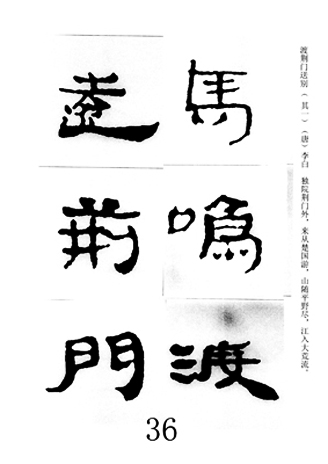 渡荆门送别（其一）（唐）李白　独院荆门外，来从楚国游，山随平野尽，江入大荒流。
馬鳴渡
遠荊門
36